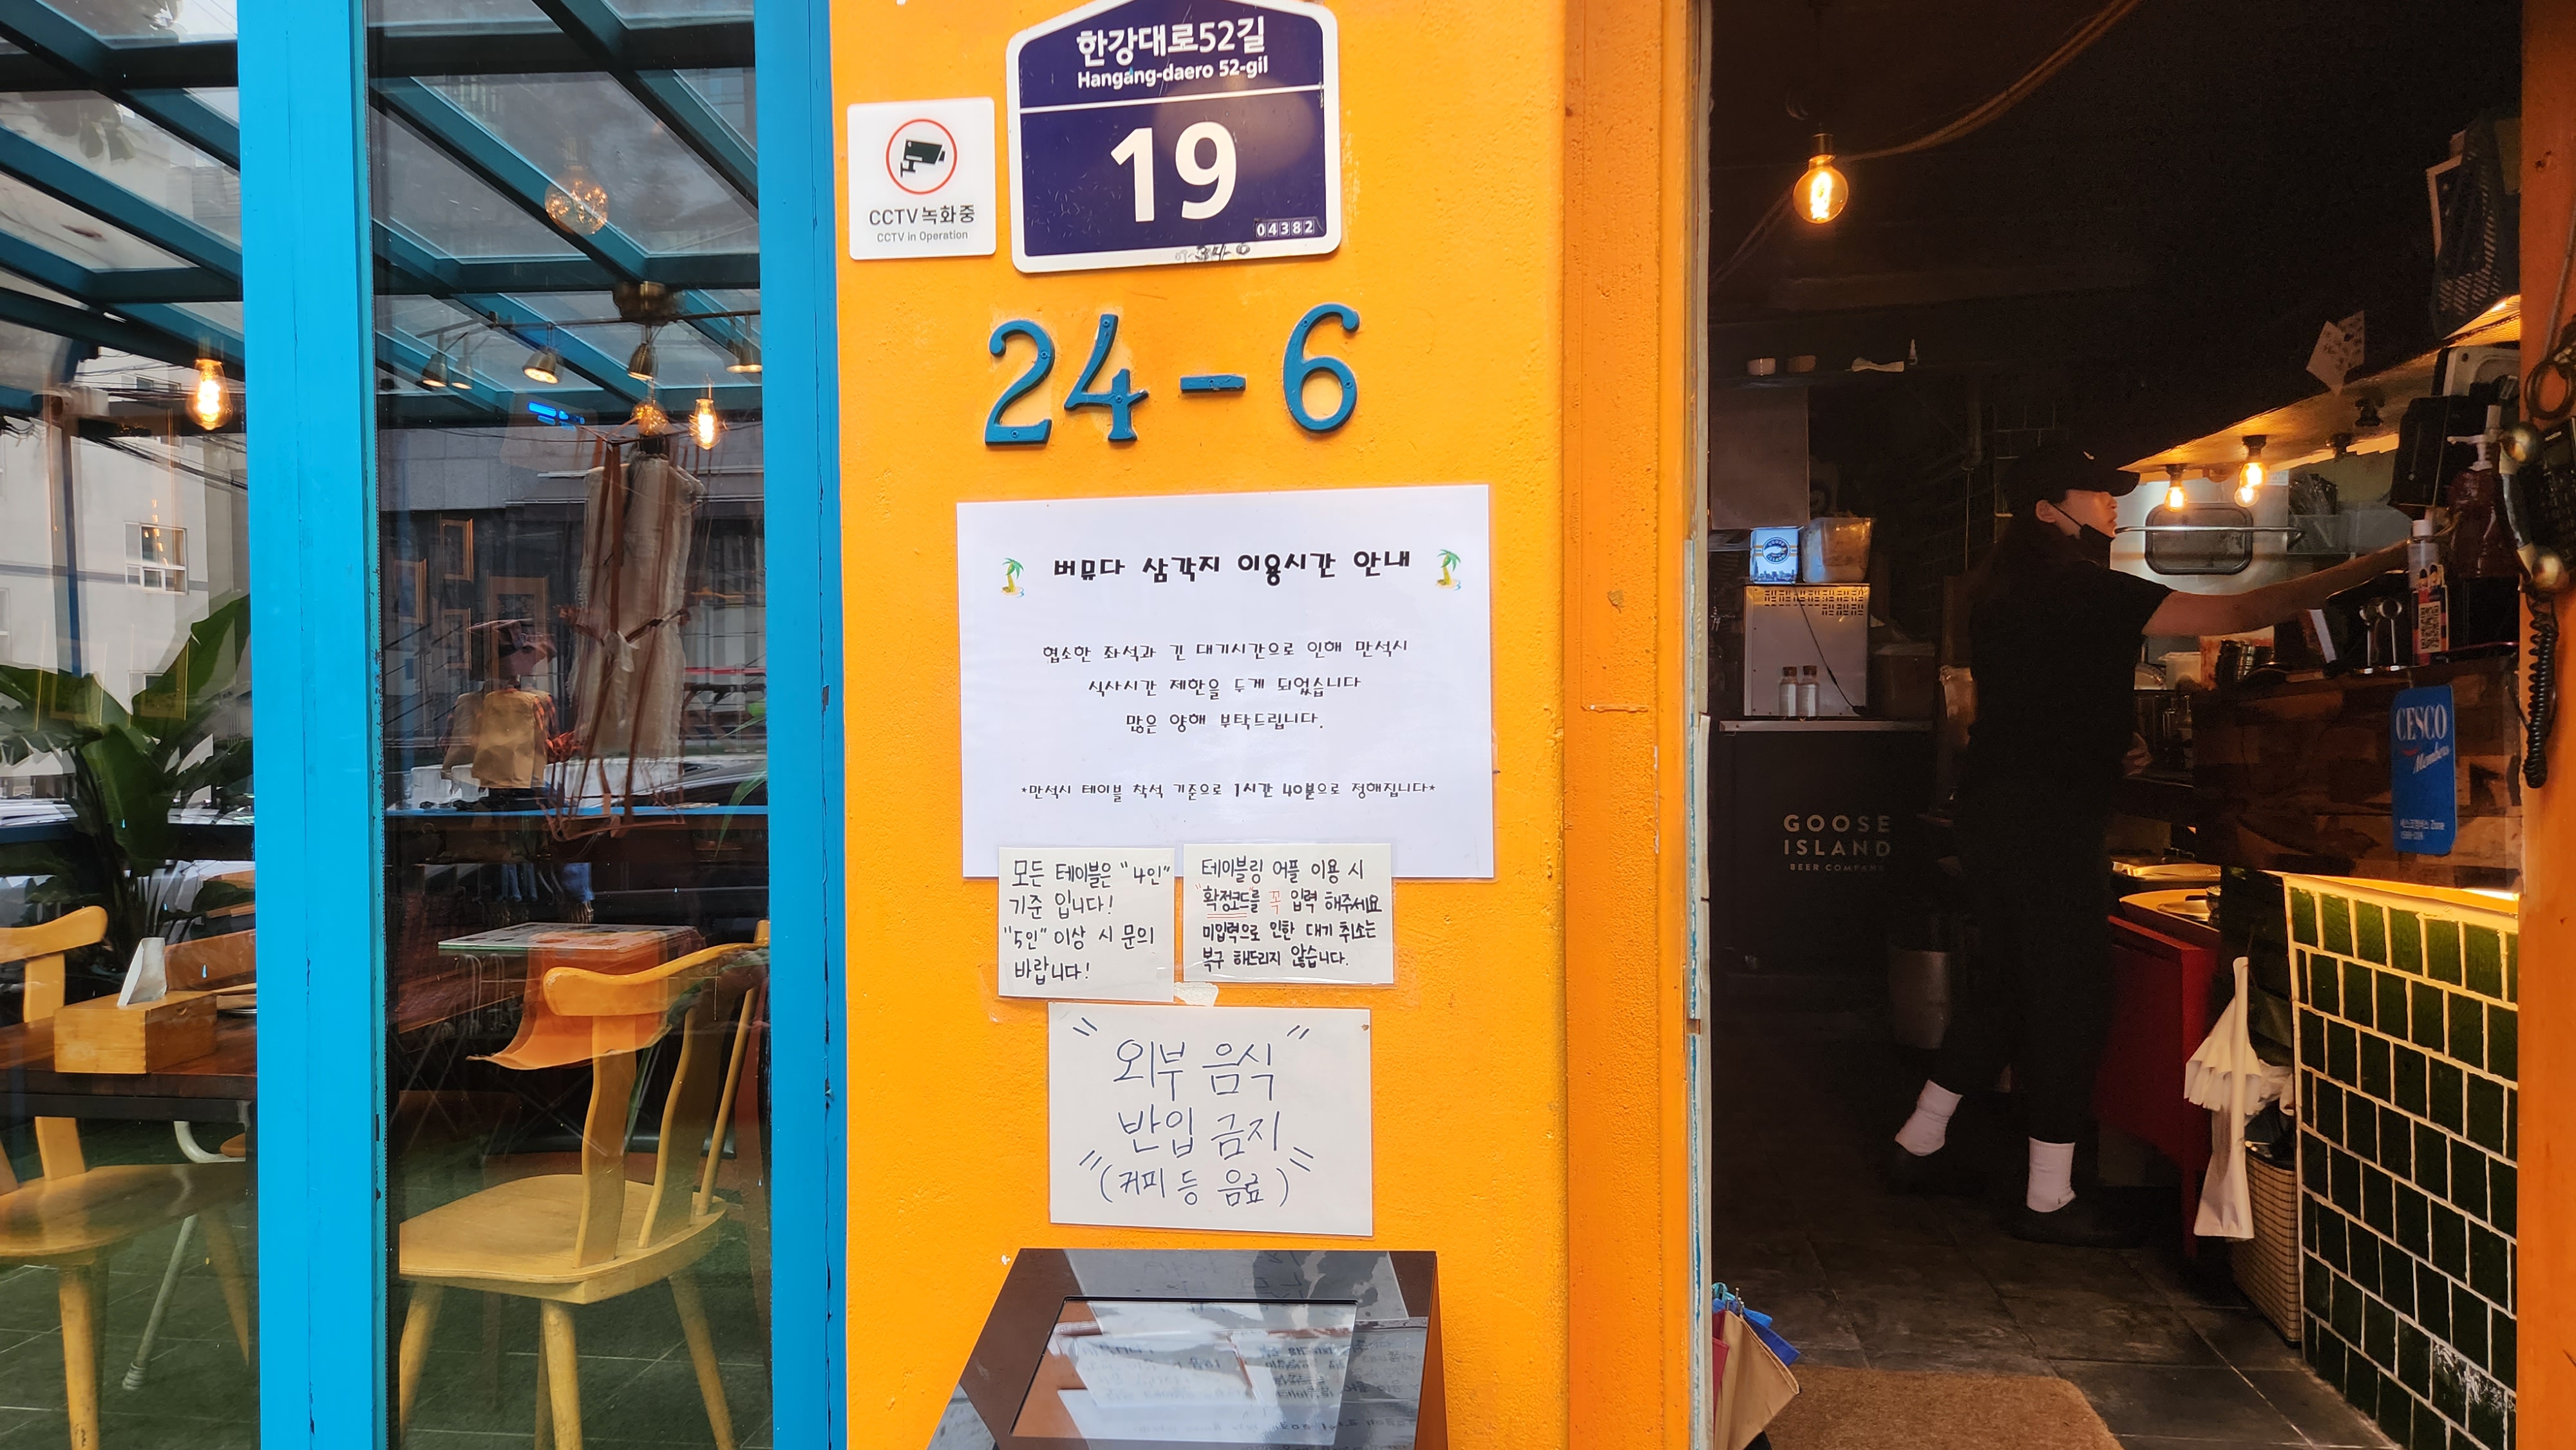 한강대로52길
Hangang-daero 52-gil
19
04382
CCTV 녹화중
CCTV in Operation
24-6
버뮤다 삼각지 이용시간 안내
협소한 좌석과 긴 대기시간으로 인해 만석시
식사시간 제한을 두게 되었습니다
많은 양해 부탁드립니다.
*만석시 테이블 착석 기준으로 1시간 40분으로 정해집니다*
모든 테이블은 "4인"
기준 입니다!
"5인" 이상 시 문의
바랍니다!
테이블링 어플 이용 시
"확정코드"를 꼭 입력 해주세요
미입력으로 인한 대기 취소는
복구 해드리지 않습니다.
외부 음식
반입 금지
(커피 등 음료)
GOOSE
ISLAND
BEER COMPANY
CESCO
Members